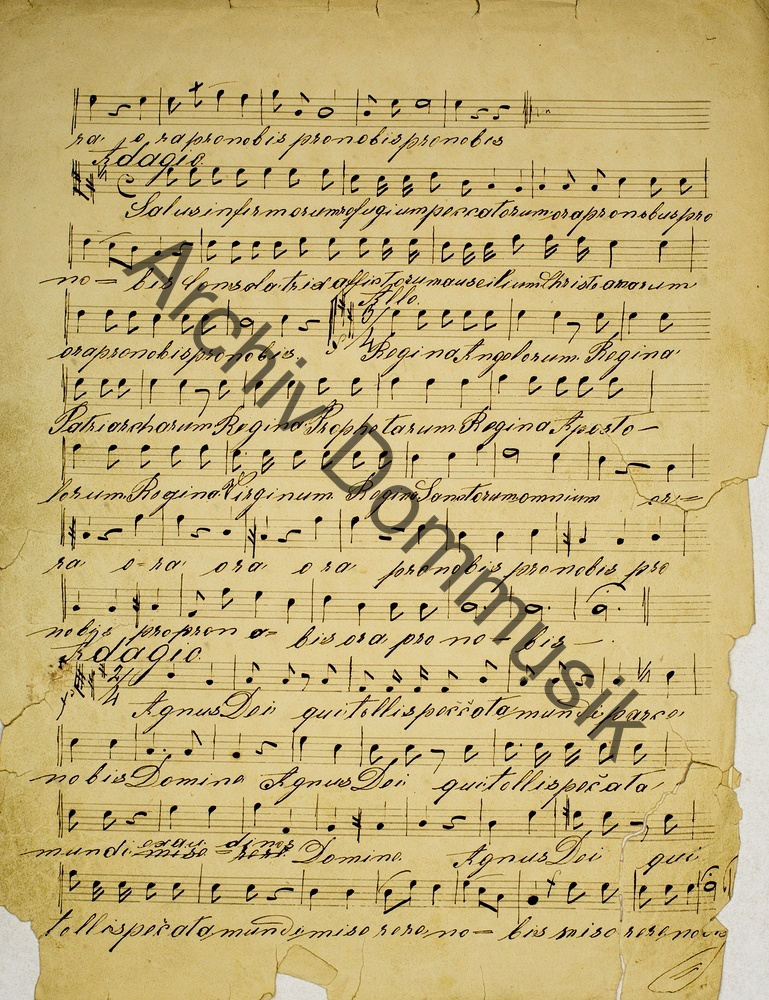 ra o rapronobis pronobispronobis
Adagio.
Salusinfirmorumrefugiumpeccatorumorapronobuspro
no = bis ConsolatrixafflictorumauxiliumChristianorum
Allo.
orapronobispronobis ReginaAngelorum Regina
PatriarcharumReginaProphetarum Regina Aposto -
lorumReginaVirginum ReginaSanctorumomnium or =
ra o = ra ora ora pronobis pronobis pro
nobis propron o = bis ora pro no - bis -
Adagio
2/4
AgnusDei quitollispeččata mundi parce
nobisDomine AgnusDei quitollispečata
exau dinos
mundi Domine. AgnusDei qui
tollispečata mundi miserere no = bis miserere nobis
Archiv Dommusik